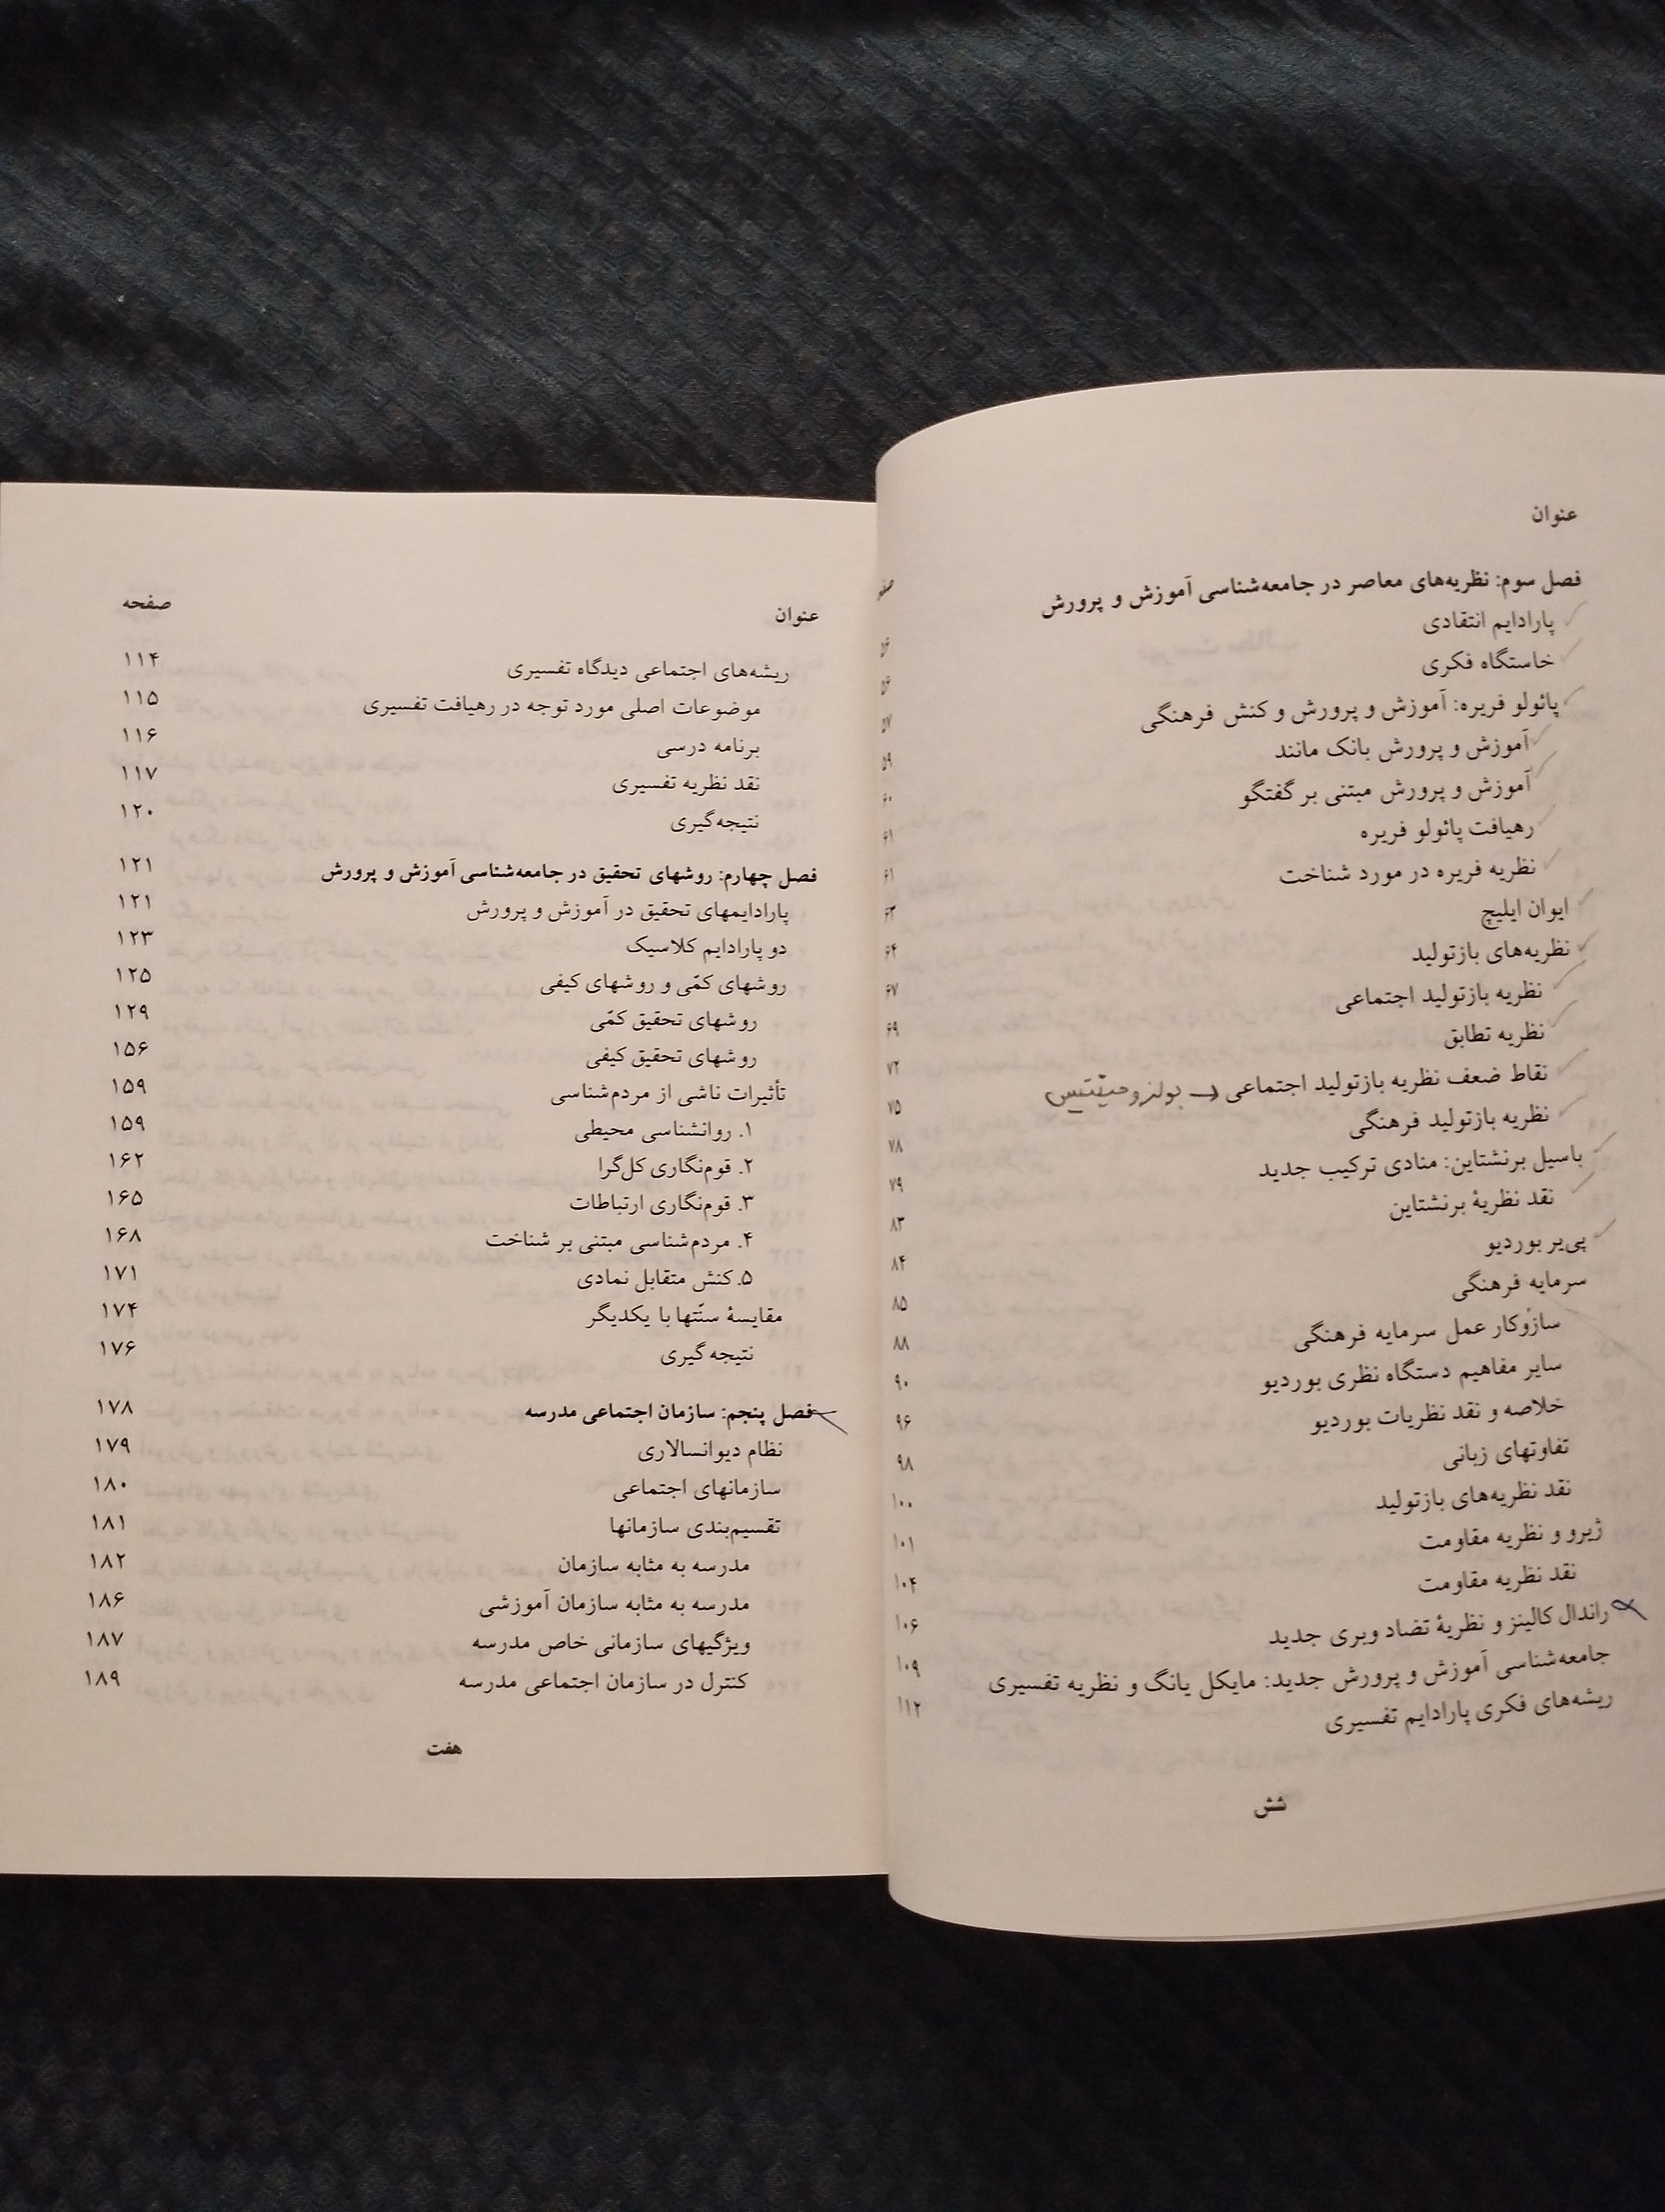 عنوان صفحه
فصل سوم: نظریه‌های معاصر در جامعه‌شناسی آموزش و پرورش ۵۶
پارادایم انتقادی ۵۶
خاستگاه فکری ۵۷
پائولو فریره: آموزش و پرورش و کنش فرهنگی ۵۹
آموزش و پرورش بانک مانند ۶۰
آموزش و پرورش مبتنی بر گفتگو ۶۱
رهیافت پائولو فریره ۶۱
نظریه فریره در مورد شناخت ۶۳
ایوان ایلیچ ۶۴
نظریه‌های بازتولید ۶۷
نظریه بازتولید اجتماعی ۶۹
نظریه تطابق ۷۲
نقاط ضعف نظریه بازتولید اجتماعی → بولز و جینتیس ۷۵
نظریه بازتولید فرهنگی ۷۸
باسیل برنشتاین: منادی ترکیب جدید ۷۹
نقد نظریهٔ برنشتاین ۸۳
پی‌یر بوردیو ۸۴
سرمایه فرهنگی ۸۵
سازوکار عمل سرمایه فرهنگی ۸۸
سایر مفاهیم دستگاه نظری بوردیو ۹۰
خلاصه و نقد نظریات بوردیو ۹۶
تفاوتهای زبانی ۹۸
نقد نظریه‌های بازتولید ۱۰۰
ژیرو و نظریه مقاومت ۱۰۱
نقد نظریه مقاومت ۱۰۴
راندال کالینز و نظریهٔ تضاد وبری جدید ۱۰۶
جامعه‌شناسی آموزش و پرورش جدید: مایکل یانگ و نظریه تفسیری ۱۰۹
ریشه‌های فکری پارادایم تفسیری ۱۱۲
شش
عنوان صفحه
ریشه‌های اجتماعی دیدگاه تفسیری ۱۱۴
موضوعات اصلی مورد توجه در رهیافت تفسیری ۱۱۵
برنامه درسی ۱۱۶
نقد نظریه تفسیری ۱۱۷
نتیجه‌گیری ۱۲۰
فصل چهارم: روشهای تحقیق در جامعه‌شناسی آموزش و پرورش ۱۲۱
پارادایمهای تحقیق در آموزش و پرورش ۱۲۱
دو پارادایم کلاسیک ۱۲۳
روشهای کمّی و روشهای کیفی ۱۲۵
روشهای تحقیق کمّی ۱۲۹
روشهای تحقیق کیفی ۱۵۶
تأثیرات ناشی از مردم‌شناسی ۱۵۹
۱. روانشناسی محیطی ۱۵۹
۲. قوم‌نگاری کل‌گرا ۱۶۲
۳. قوم‌نگاری ارتباطات ۱۶۵
۴. مردم‌شناسی مبتنی بر شناخت ۱۶۸
۵. کنش متقابل نمادی ۱۷۱
مقایسهٔ سنّتها با یکدیگر ۱۷۴
نتیجه گیری ۱۷۶
فصل پنجم: سازمان اجتماعی مدرسه ۱۷۸
نظام دیوانسالاری ۱۷۹
سازمانهای اجتماعی ۱۸۰
تقسیم‌بندی سازمانها ۱۸۱
مدرسه به مثابه سازمان ۱۸۲
مدرسه به مثابه سازمان آموزشی ۱۸۶
ویژگیهای سازمانی خاص مدرسه ۱۸۷
کنترل در سازمان اجتماعی مدرسه ۱۸۹
هفت